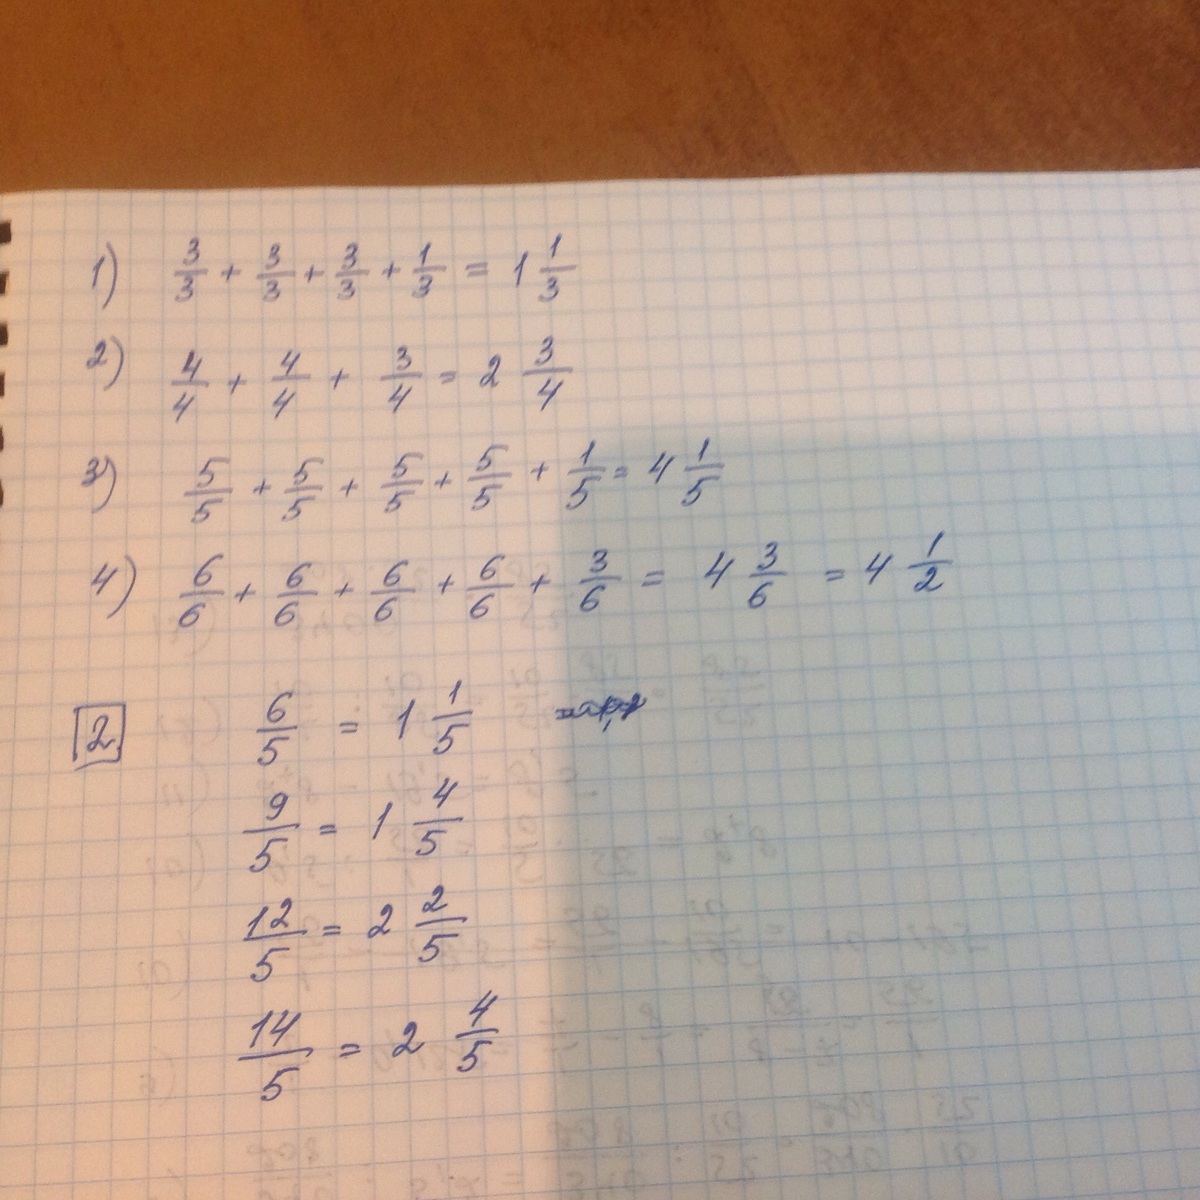 1) 3/3 + 3/3 + 3/3 + 1/3 = 1 1/3
2) 4/4 + 4/4 + 3/4 = 2 3/4
3) 5/5 + 5/5 + 5/5 + 5/5 + 1/5 = 4 1/5
4) 6/6 + 6/6 + 6/6 + 6/6 + 3/6 = 4 3/6 = 4 1/2
2 6/5 = 1 1/5
9/5 = 1 4/5
12/5 = 2 2/5
14/5 = 2 4/5